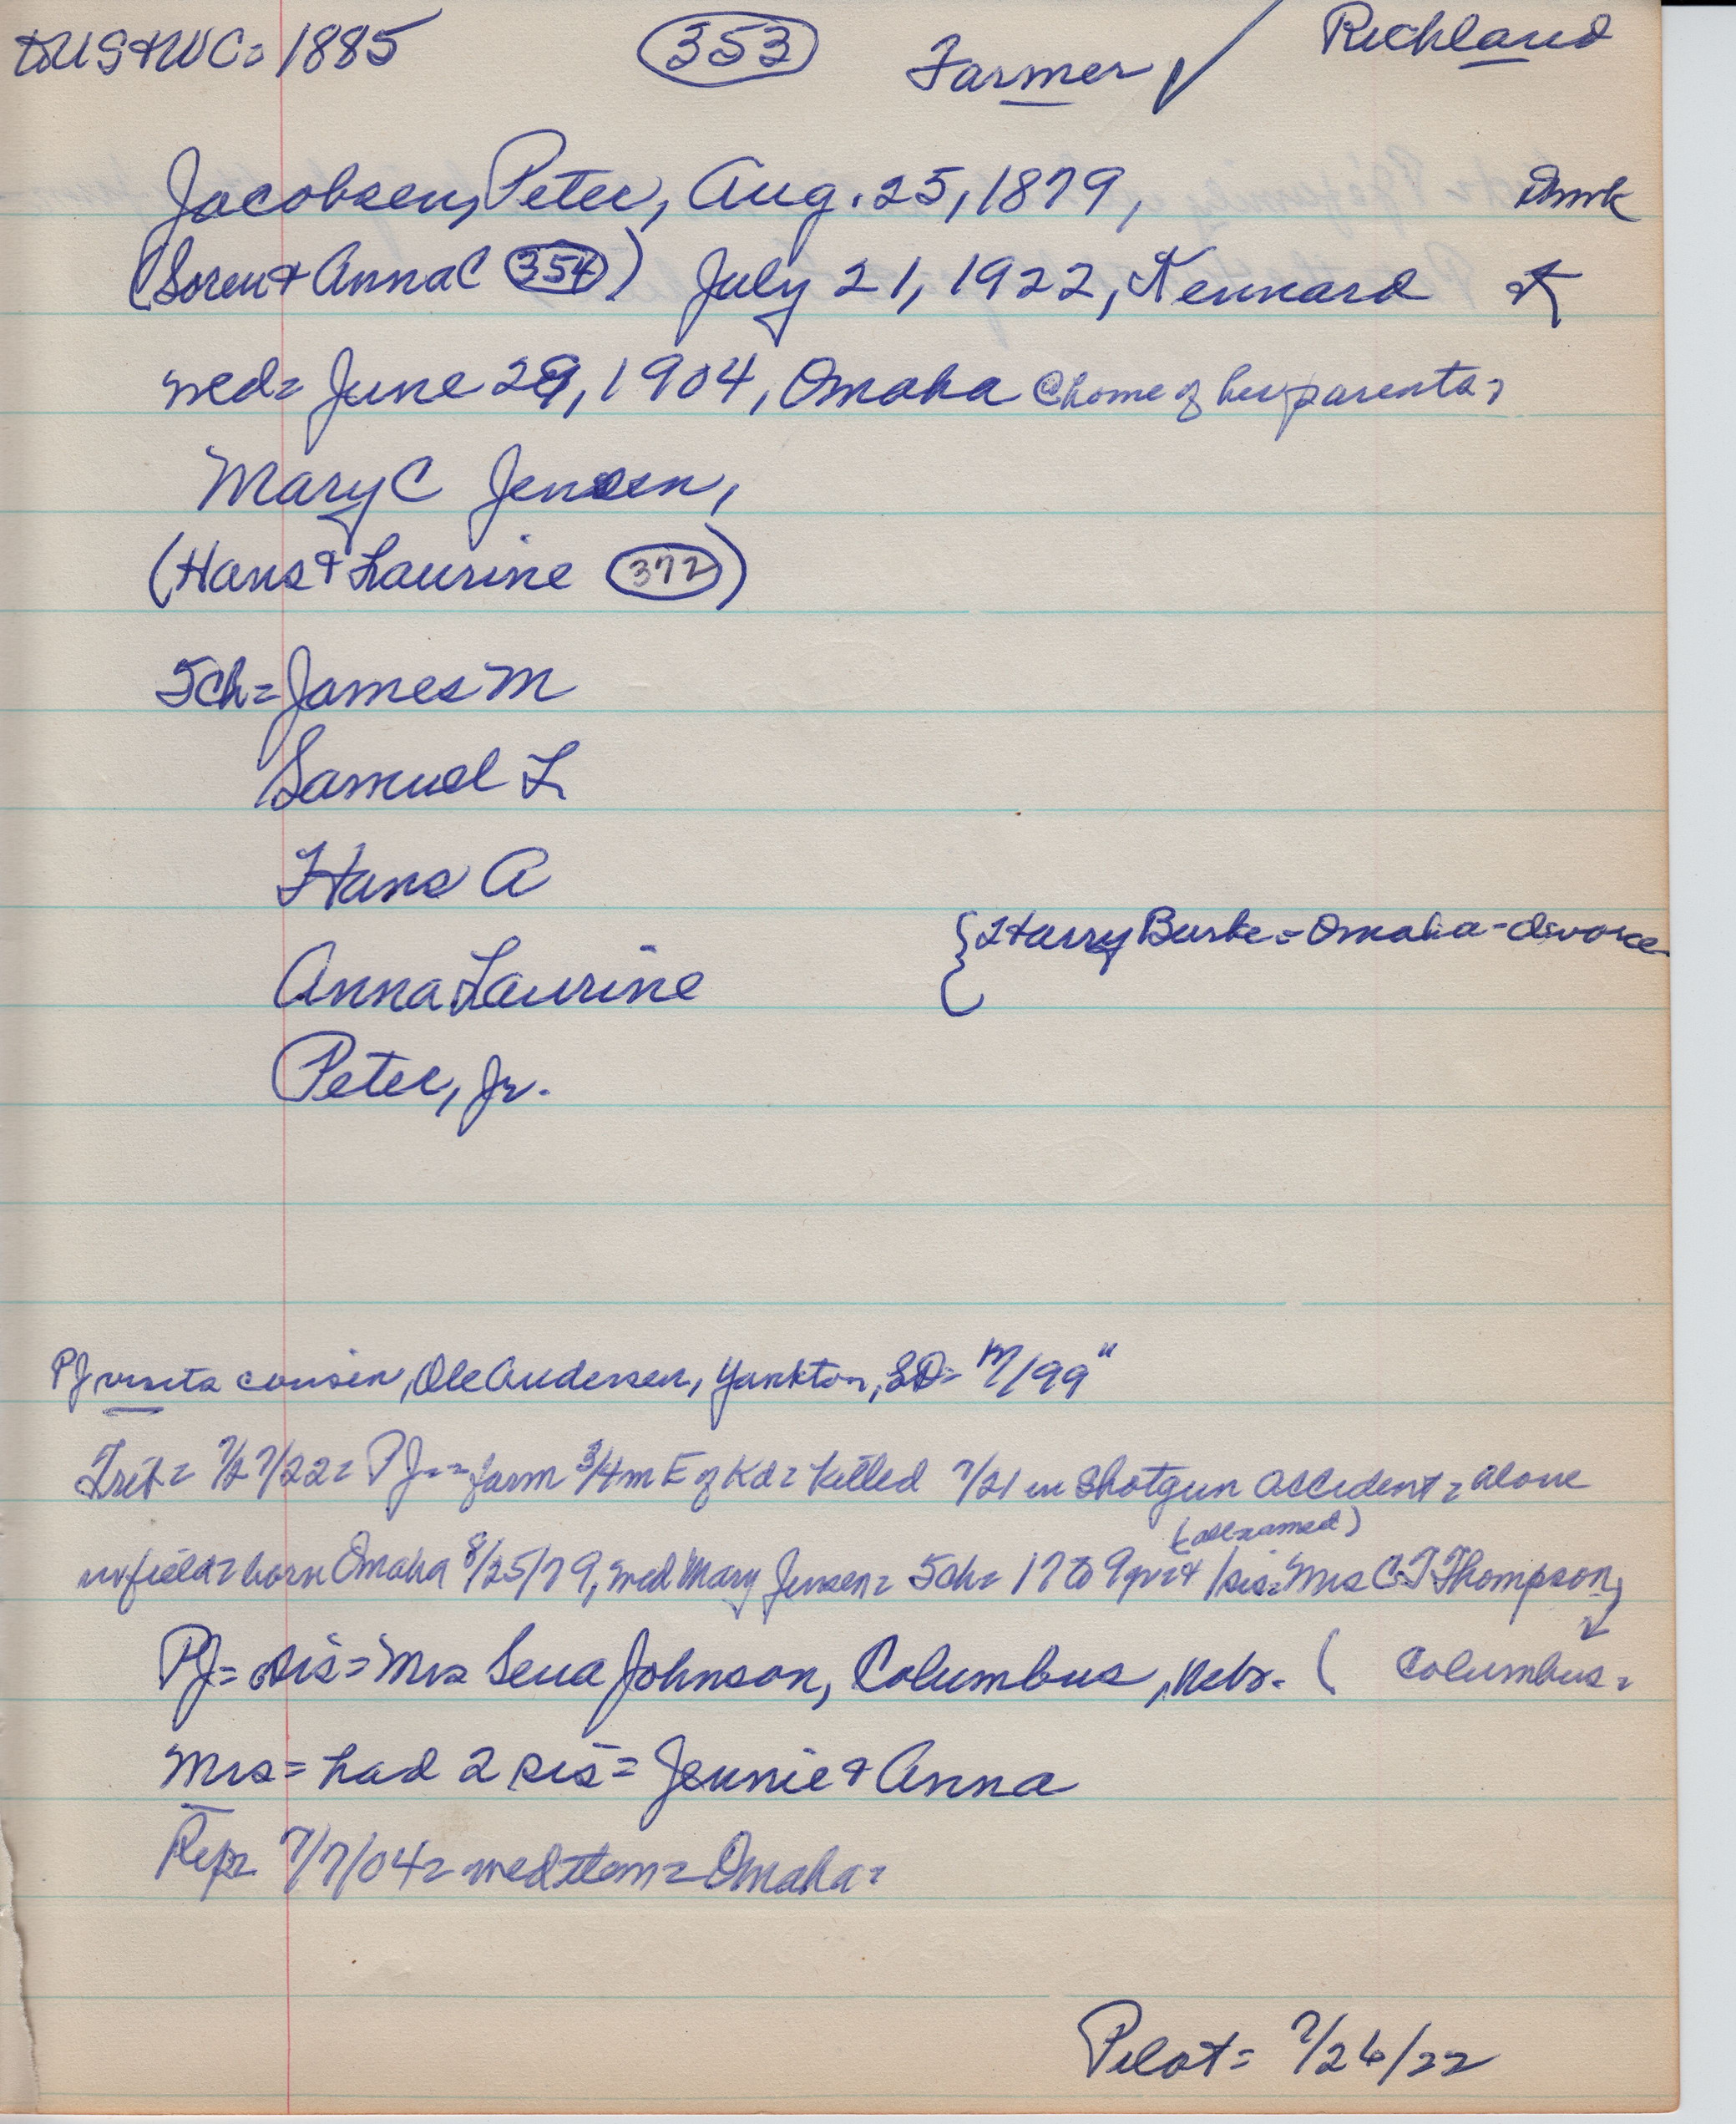 toUS+WC= 1885 353 Farmer ✓ Richland
Jacobsen, Peter, Aug. 25, 1879, Dnmk
(Soren + Anna C 354) July 21, 1922, Kennard
wed= June 29, 1904, Omaha @ home of her parents=
Mary C Jensen,
(Hans + Laurine 372)
5ch= James M
Samuel L
Hans A
{Harry Burke= Omaha-divorce
Anna Laurine
Peter, Jr.
PJ visits cousin, Ole Andersen, Yankton, SD=
Trib= 7/27/22= PJ== farm 3/4 m E of Kd= killed 7/21 in shotgun accident= alone
(all named)
in field= born Omaha 8/25/79, wed Mary Jensen= 5ch= 17 to 9 1sis= Mrs C.T Thompson,
PJ= sis= Mrs Sena Johnson, Columbus, Nebr. ( Columbus=
Mrs= had 2 sis= Jennie + Anna
Rep= 7/7/04= wed item= Omaha=
Pilot= 7/26/22